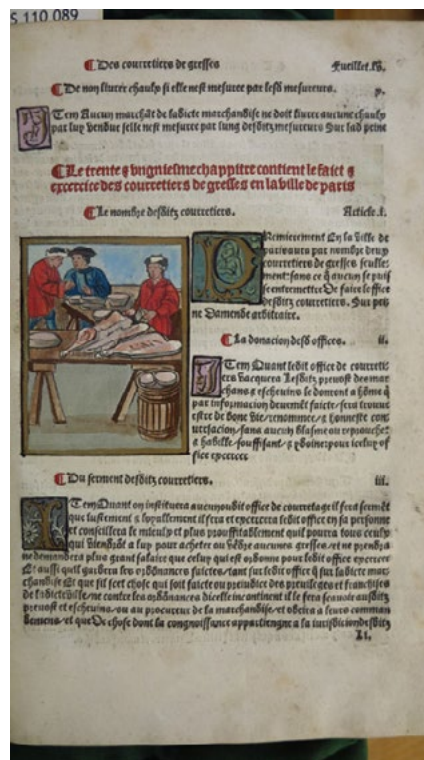 S 110 089
Des courretiers de gresses
Fueillet
De non livrer chaulx si elle nest mesuree par lesd mesureurs. v.
Item Aucun marchāt de ladicte marchandise ne doit livrer aucune chaulx
par luy vendue selle nest mesuree par lung desditz mesureurs Sur lad peine
Le trente & vngniesme chappitre contient le faict &
excercice des courretiers de gresses en la ville de paris
Le nombre desditz courretiers. Article.i.
Premierement En la ville de
par nombre deux
courretiers de gresses seulle-
ment: sans ce q̄ aucun se puist
sentremettre De faire loffice
desditz courretiers. Sur pei
ne Damende arbitraire.
La donacion desd offices. ii.
Item Quant ledit office de courretiers
vacquera Lesditz prevost des mar
chans & eschevins le donront a hōme q̄
par informacion deuement faicte/sera trouve
estre de bone vie/renommee/& honneste con
versacion/sans aucun blasme ou reprouche:
& habille/souffisant/& ydoine: pour icelup of
fice excercer
Du serment desditz courretiers. iii.
Item Quant on instituera aucun oudit office de courretage il fera sermēt
que iustement & loyallement il fera et excercera ledit office en sa personne
et conseillera le mieulx et plus prouffitablement quil pourra tous ceulx
qui viendrāt a luy pour acheter ou vēdre aucunes gresses/et ne prendra
ne demandera plus grant salaire que celuy qui est ordonne pour ledit office excercer
Et aussi quil gardera les ordonnances faictes/tant sur ledit office q̄ sur ladicte mar
chandise Et que sil scet chose qui soit faicte ou preiudice des previleges et franchises
de ladicte ville/ne contre les ordōnances dicelle incontinent il le fera scavoir ausditz
prevost et eschevins/ou au procureur de la marchandise/et obeira a leurs comman
demens/et que De chose dont la congnoissance appartiengne a la iurisdicion desditz